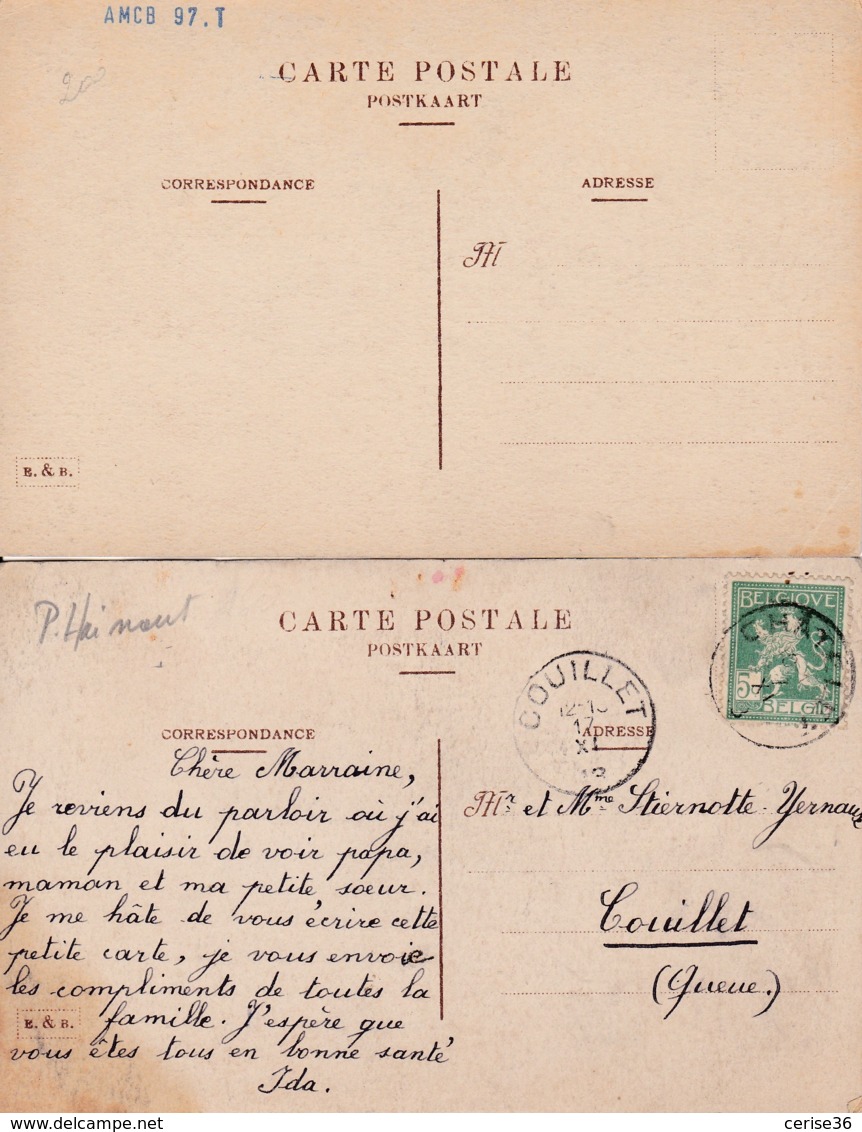 AMCB 97.T
200
CARTE POSTALE
POSTKAART
CORRESPONDANCE
ADRESSE
M
E. & B.
P. Hainaut
CARTE POSTALE
POSTKAART
BELGIQUE
5
BELGIE
COUILLET
12-13
17
XI
CORRESPONDANCE
ADRESSE
Chère Marraine,
Je reviens du parloir où j'ai
eu le plaisir de voir papa,
maman et ma petite sœur.
Je me hâte de vous écrire cette
petite carte, je vous envoie
les compliments de toutes la
famille. J'espère que
vous êtes tous en bonne santé
Ida.
E. & B.
Mr et Mme Stiernotte-Yernaux
Couillet
(Queue.)
cerise36